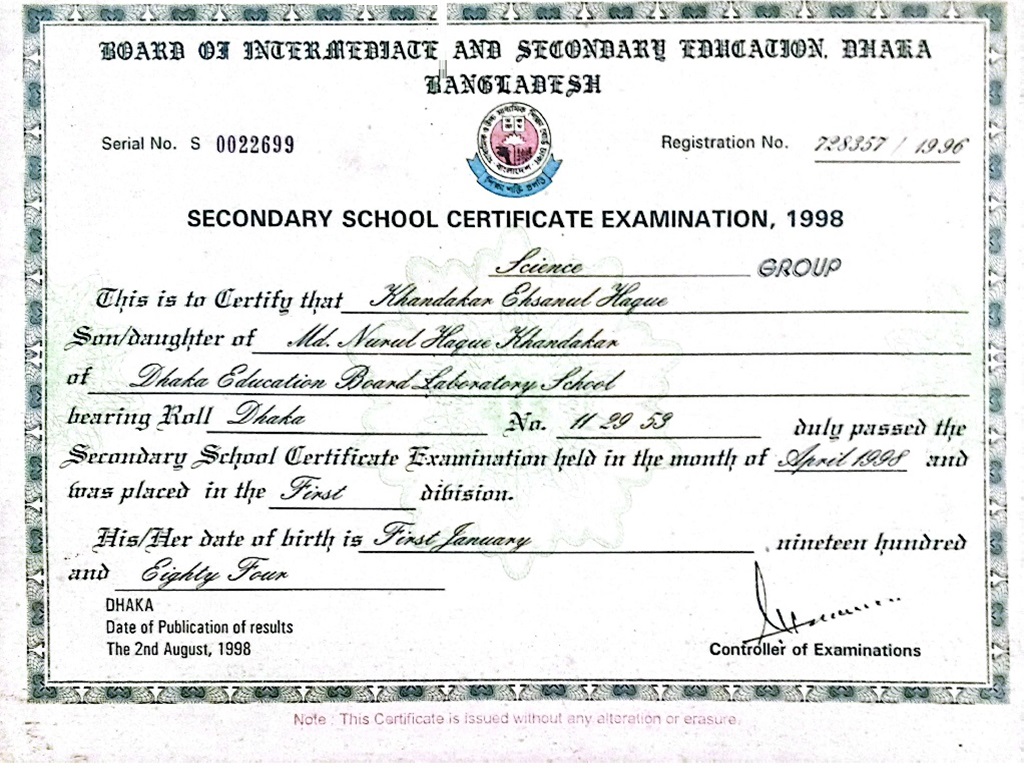 BOARD OF INTERMEDIATE AND SECONDARY EDUCATION, DHAKA
BANGLADESH
Serial No. S 0022699
Registration No. 728357 / 1996
SECONDARY SCHOOL CERTIFICATE EXAMINATION, 1998
Science GROUP
This is to Certify that Khandakar Ehsanul Haque
Son/daughter of Md. Nurul Haque Khandakar
of Dhaka Education Board Laboratory School
bearing Roll Dhaka No. 11 29 53 duly passed the
Secondary School Certificate Examination held in the month of April 1998 and
was placed in the First division.
His/Her date of birth is First January nineteen hundred
and Eighty Four
DHAKA
Date of Publication of results
The 2nd August, 1998
Controller of Examinations
Note : This Certificate is issued without any alteration or erasure.